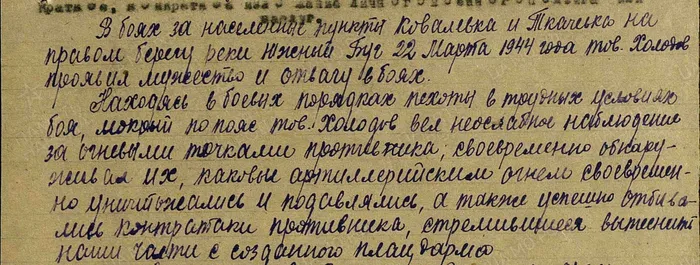 Краткое, конкретное изложение личного боевого подвига или
заслуг.
В боях за населенные пункты Ковалевка и Ткачевка на
правом берегу реки Южный Буг 22 Марта 1944 года тов. Холодов
проявил мужество и отвагу в боях.
Находясь в боевых порядках пехоты в трудных условиях
боя, мокрый по пояс тов. Холодов вел неослабное наблюдение
за огневыми точками противника; своевременно обнару-
живал их, каковые артиллерийским огнем своевремен-
но уничтожались и подавлялись, а также успешно отбива-
лись контратаки противника, стремившиеся вытеснить
наши части с созданного плацдарма